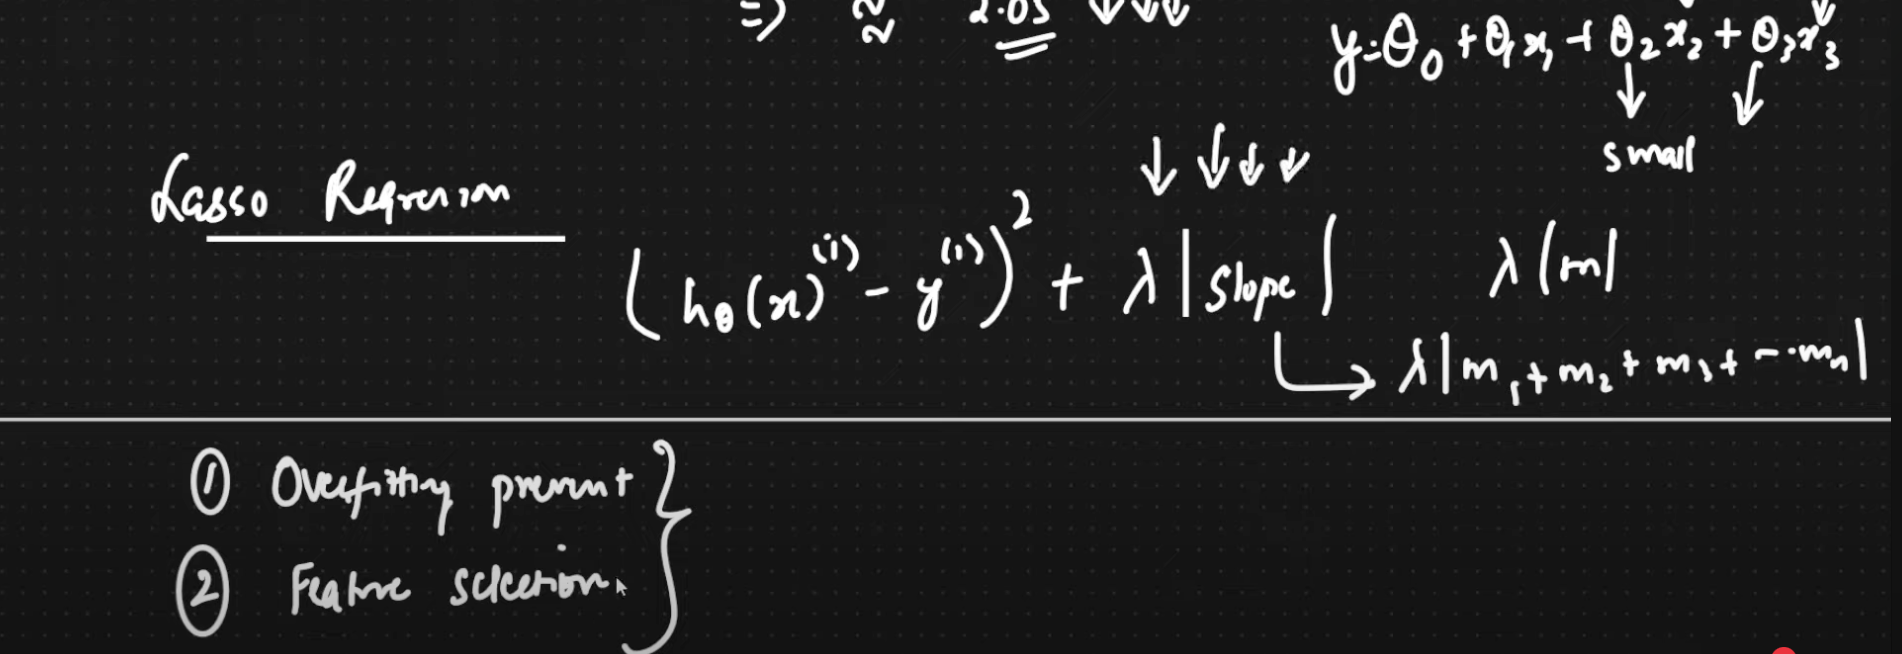 => ≈ 2.05 ↓↓↓
y=θ₀ + θ₁x₁ + θ₂x₂ + θ₃x₃
small
Lasso Regression
(hθ(x)⁽ⁱ⁾ - y⁽ⁱ⁾)² + λ|slope|
λ|m|
λ|m₁+m₂+m₃+---mₙ|
① Overfitting prevent
② Feature selection